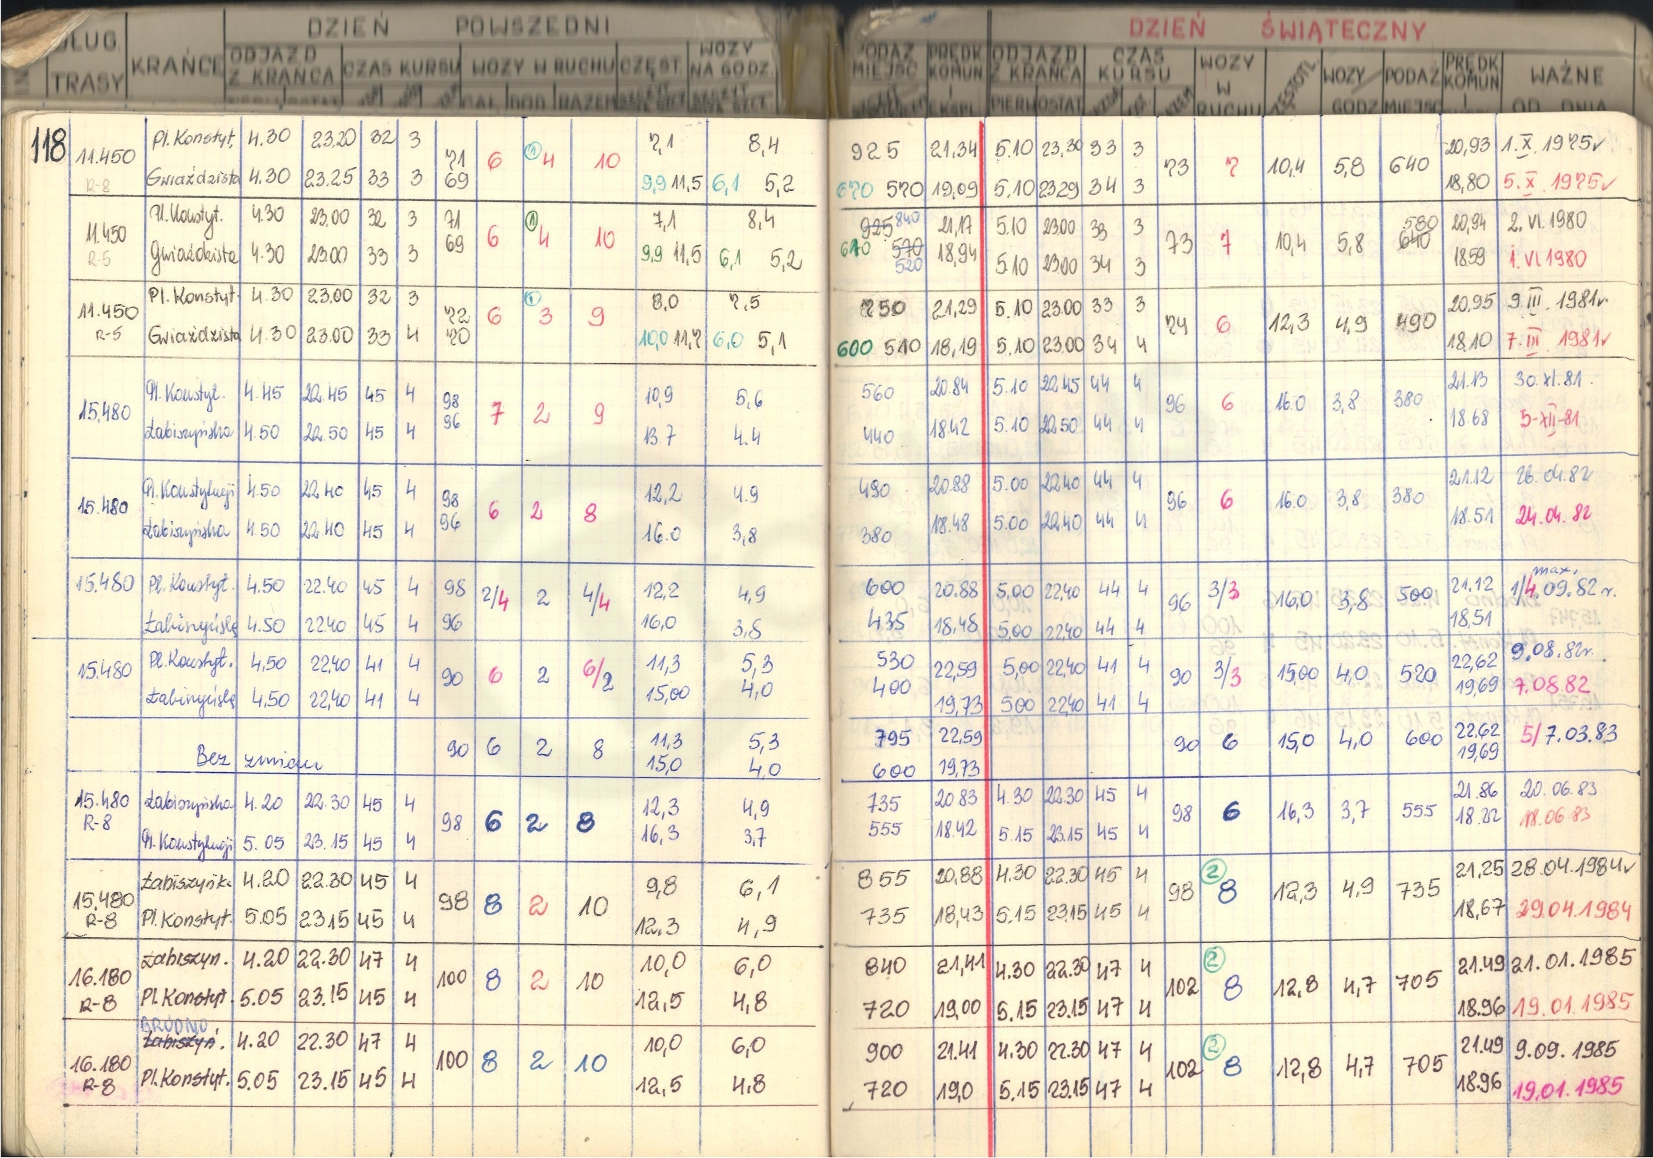 DZIEŃ POWSZEDNI DZIEŃ ŚWIĄTECZNY
DŁUG. TRASY KRAŃCE ODJAZD Z KRAŃCA CZAS KURSU WOZY W RUCHU CZĘST WOZY NA GODZ. PODAŻ MIEJSC PRĘDK KOMUN ODJAZD Z KRAŃCA CZAS KURSU WOZY W RUCHU WOZY GODZ PODAŻ MIEJSC PRĘDK KOMUN WAŻNE OD DNIA
118
Pl. Konstyt. 4.30 23.20 32 3 7,1 8,4 925 21,34 5.10 23,30 33 3 20,93 1.X.1975r
11.450 71 6 (1) 4 10 73 7 10,4 5,8 640
R-8 Gwiaździsta 4.30 23.25 33 3 69 9,9 11,5 6,1 5,2 670 570 19,09 5.10 23.29 34 3 18,80 5.X.1975r
Pl. Konstyt. 4.30 23.00 32 3 71 7,1 8,4 925 840 21,17 5.10 23.00 33 3 580 20,94 2.VI.1980
11.450 69 6 (1) 4 10 73 7 10,4 5,8 640
R-5 Gwiaździsta 4.30 23.00 33 3 9,9 11,5 6,1 5,2 610 570 520 18,94 5.10 23.00 34 3 18.59 1.VI.1980
Pl. Konstyt. 4.30 23.00 32 3 8,0 7,5 750 21,29 5.10 23.00 33 3 20,95 9.III.1981r.
11.450 72 6 (1) 3 9 74 6 12,3 4,9 490
R-5 Gwiaździsta 4.30 23.00 33 4 70 10,0 11,7 6,0 5,1 600 510 18,19 5.10 23.00 34 4 18.10 7.III.1981r
Pl. Konstyt. 4.45 22.45 45 4 98 10,9 5,6 560 20.84 5.10 22.45 44 4 21.13 30.XI.81.
15,480 7 2 9 96 6 16.0 3,8 380
Łabiszyńska 4.50 22.50 45 4 96 13.7 4.4 440 18.42 5.10 22.50 44 4 18.68 5-XII-81
Pl. Konstytucji 4.50 22.40 45 4 98 12,2 4.9 490 20.88 5.00 22.40 44 4 21.12 26.04.82
15.480 6 2 8 96 6 16.0 3,8 380
Łabiszyńska 4.50 22.40 45 4 96 16.0 3,8 380 18.48 5.00 22.40 44 4 18.51 24.04.82
max.
15.480 Pl. Konstyt. 4.50 22.40 45 4 98 2/4 2 4/4 12,2 4,9 600 20.88 5,00 22,40 44 4 96 3/3 16,0 3,8 500 21,12 1/4.09.82 r.
Łabiszyńska 4.50 22.40 45 4 96 16,0 3,8 435 18,48 5,00 22,40 44 4 18,51
15.480 Pl. Konstyt. 4,50 22,40 41 4 90 6 2 6/2 11,3 5,3 530 22,59 5,00 22,40 41 4 90 3/3 15,00 4,0 520 22,62 9.08.82r.
Łabiszyńska 4,50 22,40 41 4 15,00 4,0 400 19,73 5,00 22,40 41 4 19,69 7.08.82
Bez zmian 90 6 2 8 11,3 5,3 795 22,59 90 6 15,0 4,0 600 22,62 5/7.03.83
15,0 4,0 600 19,73 19,69
15.480 Łabiszyńska 4.20 22.30 45 4 12,3 4,9 735 20.83 4.30 22.30 45 4 21.86 20.06.83
R-8 98 6 2 8 98 6 16,3 3,7 555
Pl. Konstytucji 5.05 23.15 45 4 16,3 3,7 555 18.42 5.15 23.15 45 4 18.22 18.06.83
Łabiszyńsk. 4.20 22.30 45 4 9,8 6,1 855 20,88 4.30 22.30 45 4 21,25 28.04.1984r
15.480 98 8 2 10 98 (2) 8 12,3 4,9 735
R-8 Pl. Konstyt. 5.05 23.15 45 4 12,3 4,9 735 18,43 5.15 23.15 45 4 18,67 29.04.1984
Łabiszyn. 4.20 22.30 47 4 10,0 6,0 840 21,41 4.30 22.30 47 4 21.49 21.01.1985
16.180 100 8 2 10 102 (2) 8 12,8 4,7 705
R-8 Pl. Konstyt. 5.05 23.15 45 4 12,5 4,8 720 19,00 5.15 23.15 47 4 18.96 19.01.1985
BRÓDNO
Łabiszyń. 4.20 22.30 47 4 10,0 6,0 900 21.41 4.30 22.30 47 4 21.49 9.09.1985
16.180 100 8 2 10 102 (2) 8 12,8 4,7 705
R-8 Pl. Konstyt. 5.05 23.15 45 4 12,5 4,8 720 19,0 5.15 23.15 47 4 18.96 19.01.1985